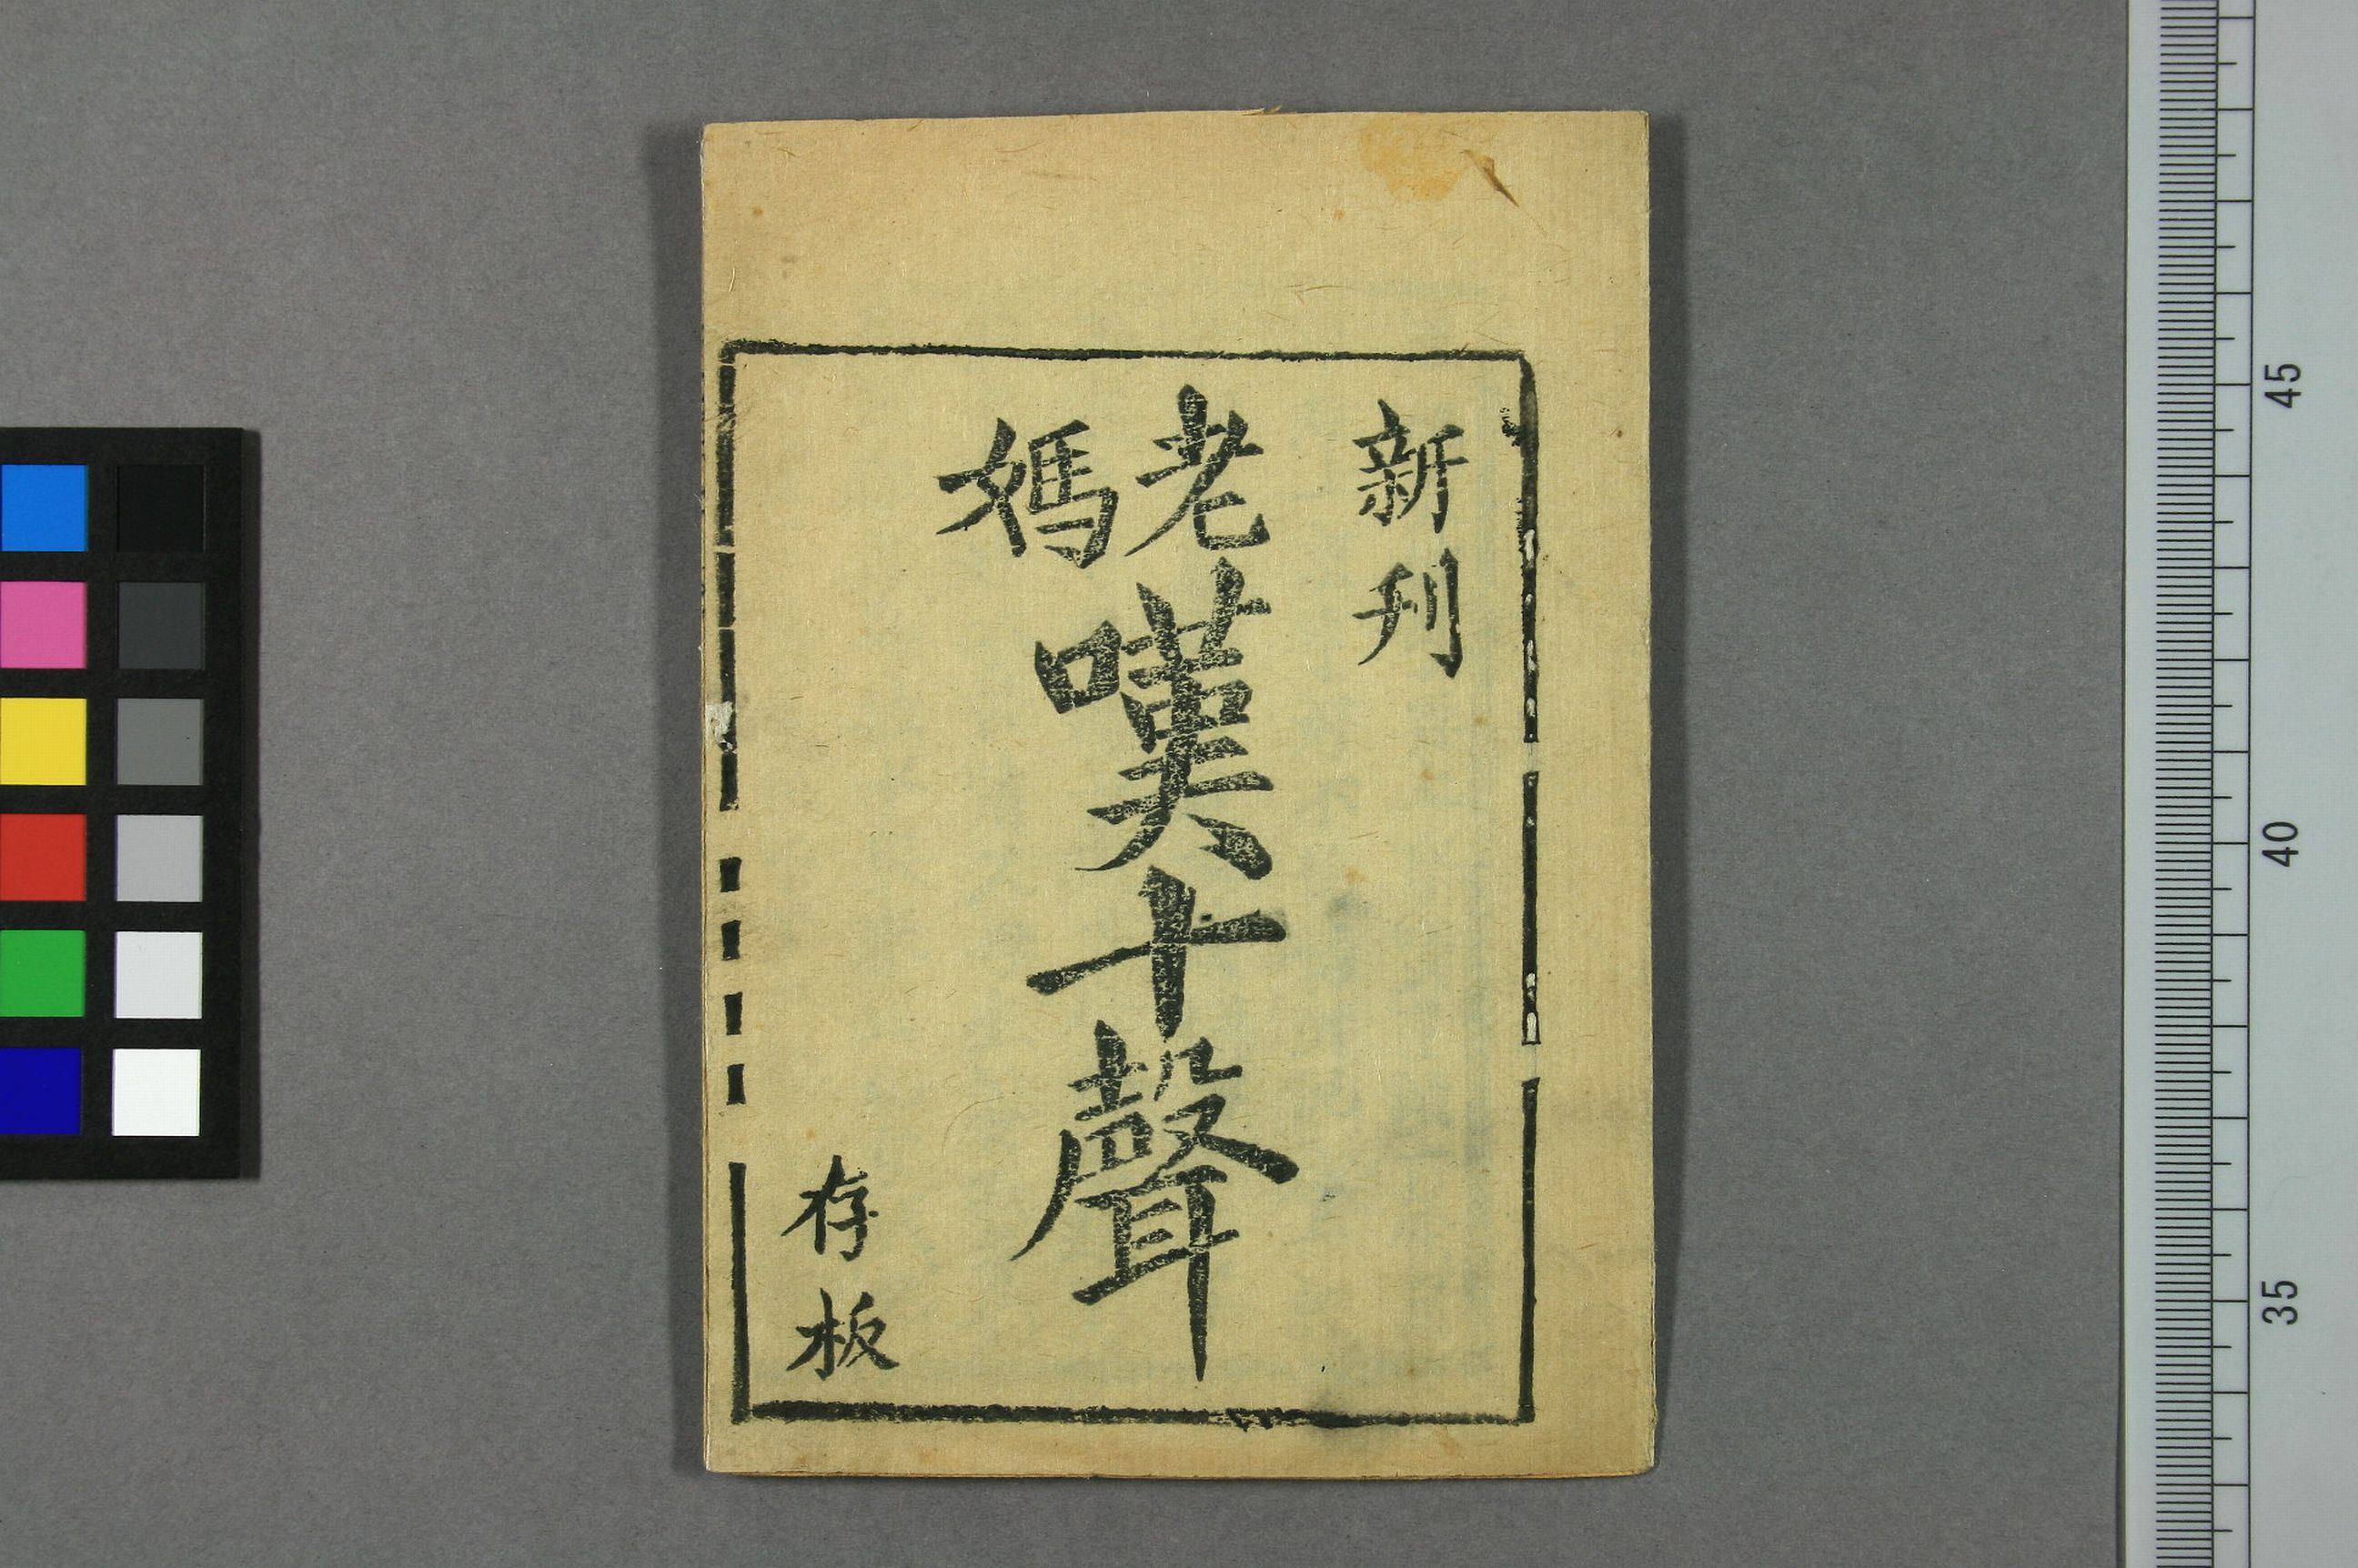 新刊
老媽嘆十聲
存板
45
40
35